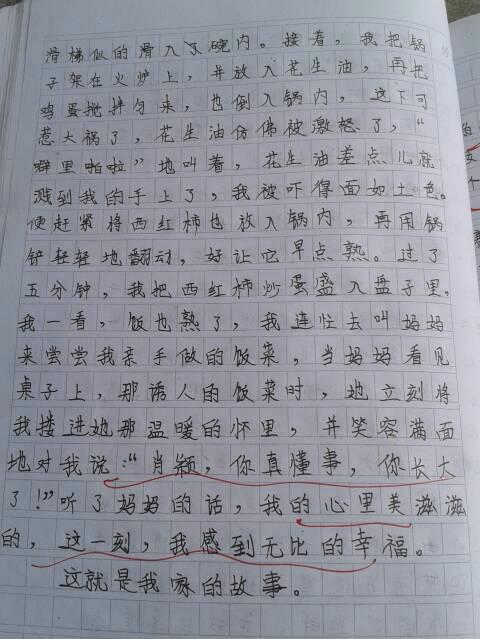 滑梯似的滑入了碗内。接着，我把锅
子架在火炉上，并放入花生油，再把
鸡蛋搅拌匀来，也倒入锅内，这下可
惹大祸了，花生油仿佛被激怒了，“
噼里啪啦”地叫着，花生油差点儿就
溅到我的手上了，我被吓得面如土色。
便赶紧将西红柿也放入锅内，再用锅
铲轻轻地翻动，好让它早点熟。过了
五分钟，我把西红柿炒蛋盛入盘子里。
我一看，饭也熟了，我连忙去叫妈妈
来尝尝我亲手做的饭菜，当妈妈看见
桌子上，那诱人的饭菜时，她立刻将
我搂进她那温暖的怀里，并笑容满面
地对我说：“肖颖，你真懂事，你长大
了！”听了妈妈的话，我的心里美滋滋
的，这一刻，我感到无比的幸福。
这就是我家的故事。